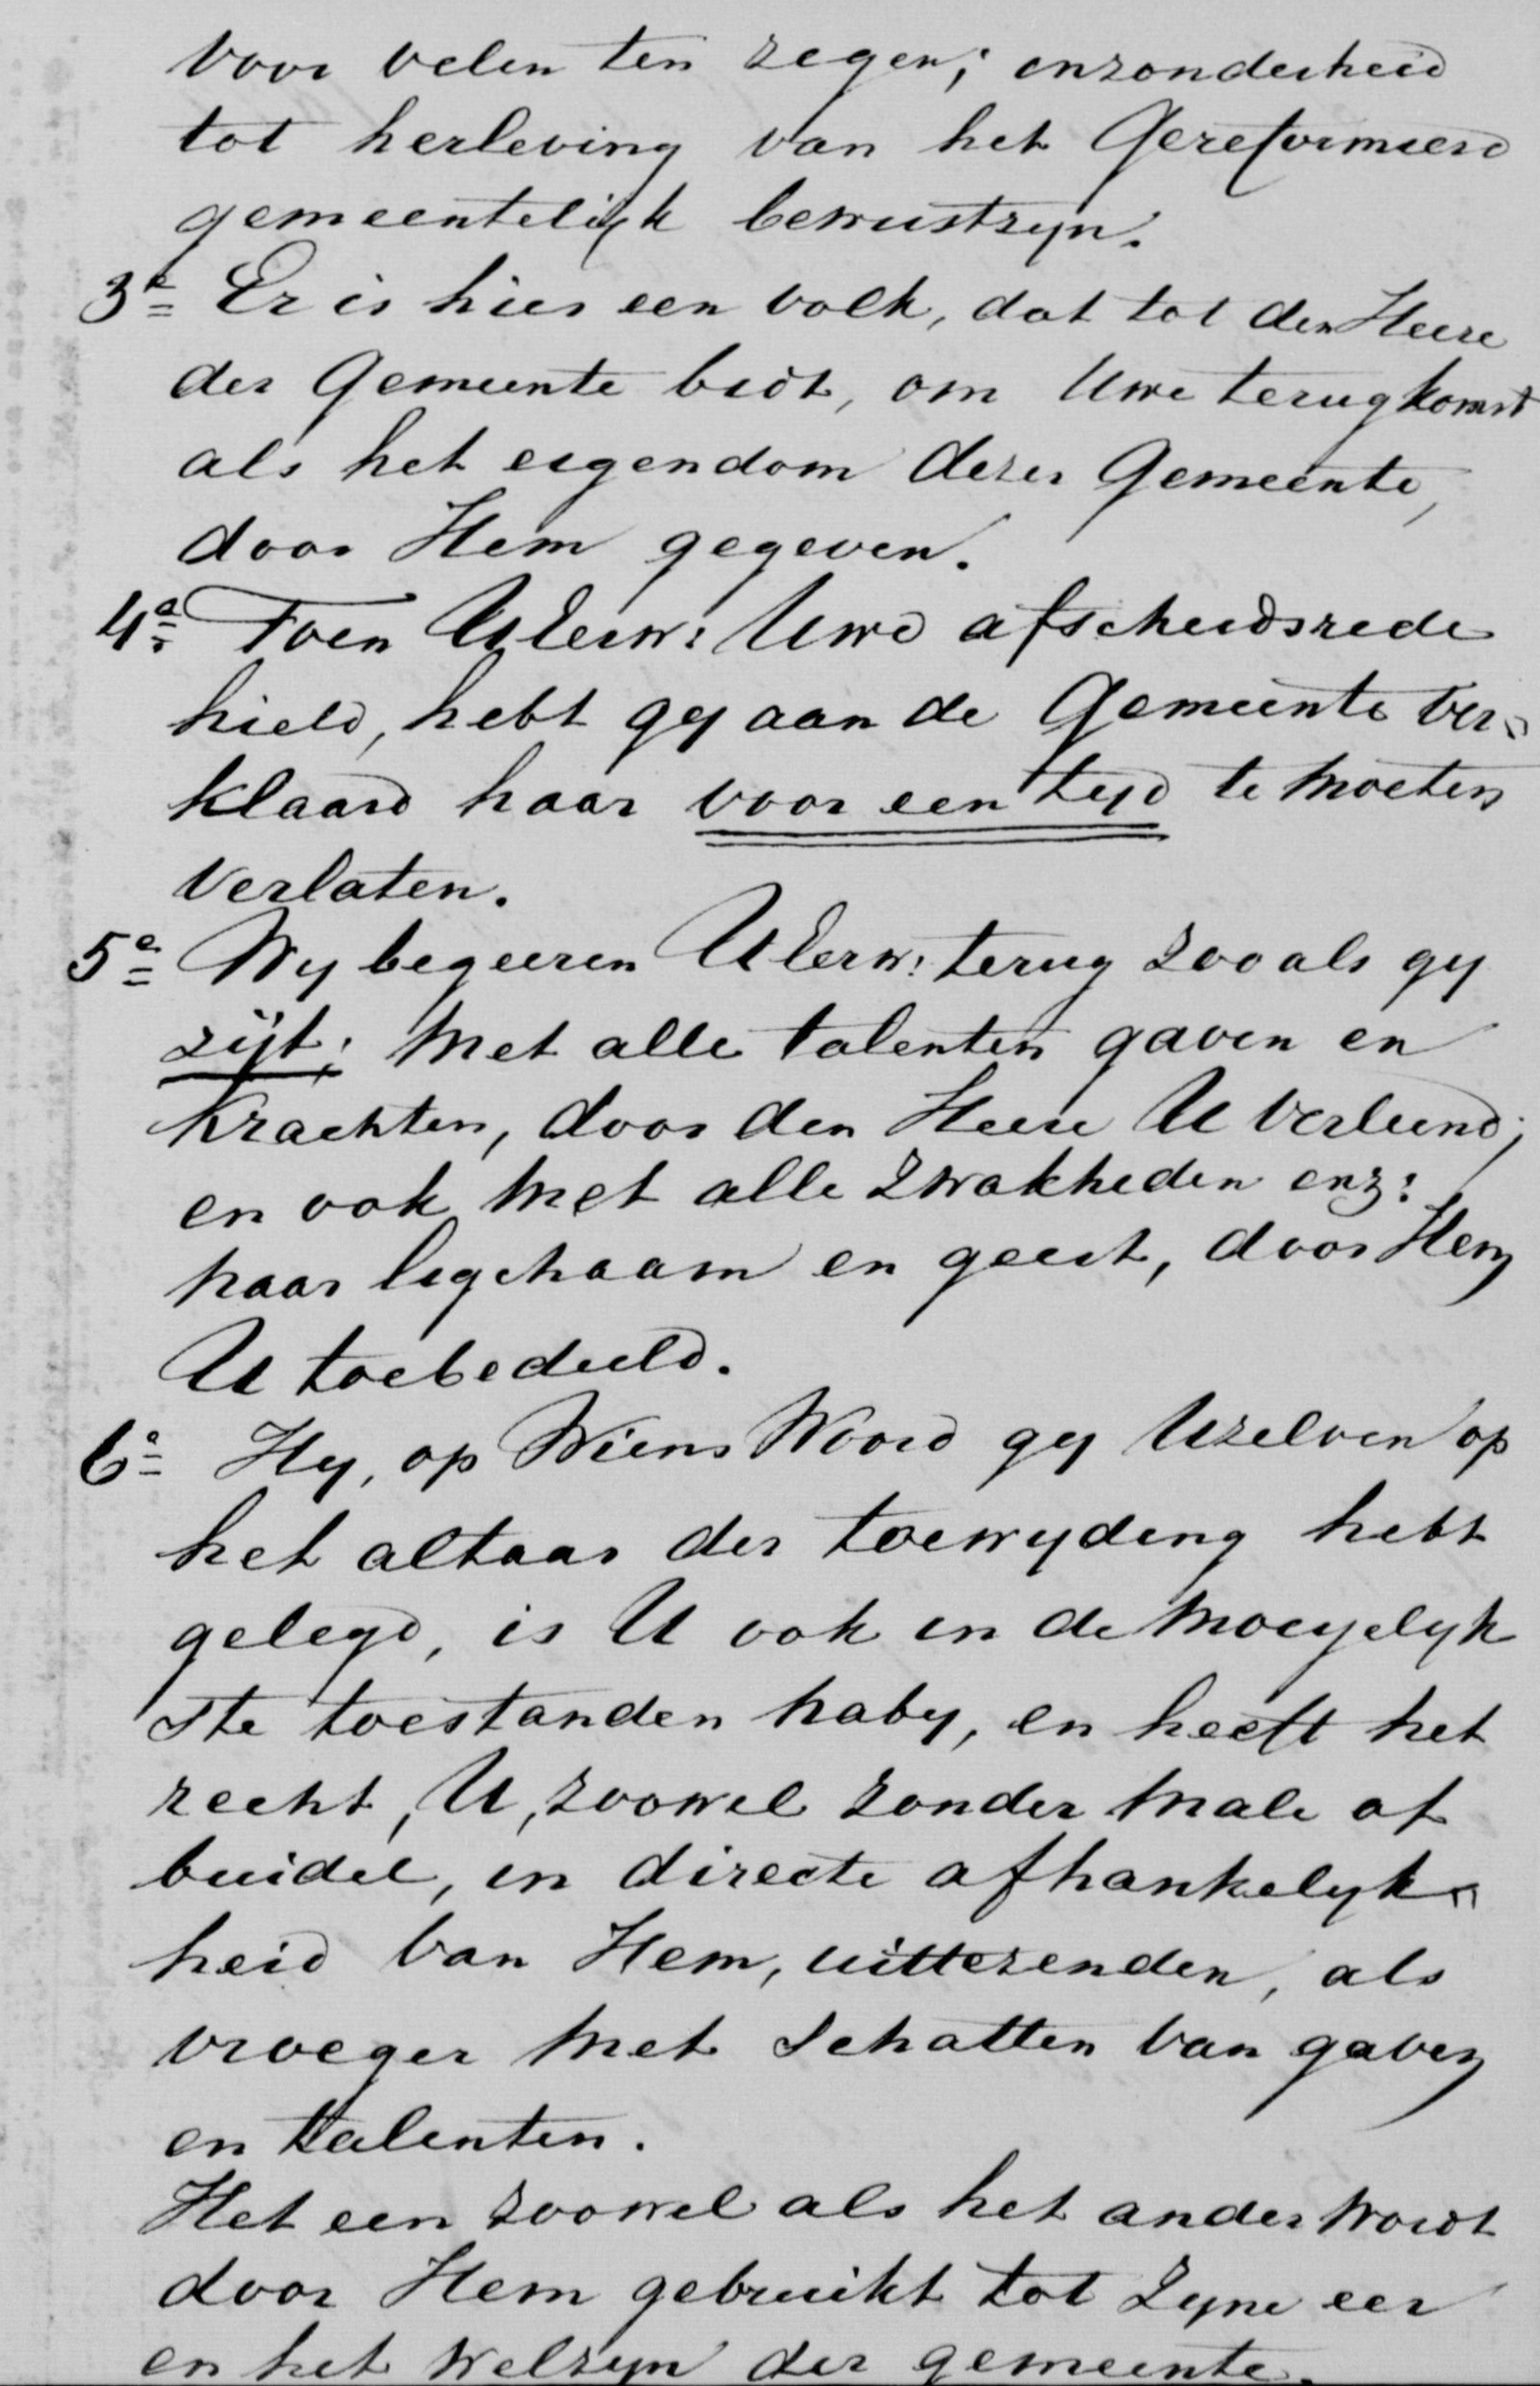 voor velen ten zegen; inzonderheid
tot herleving van het Gereformeerd
gemeentelijk bewustzyn.
3e Er is hier een volk, dat tot den Heere
der Gemeente bidt, om Uwe terugkomst
als het eigendom dezer Gemeente,
door Hem gegeven.
4e Toen UEerw: Uwe afscheidsrede
hield, hebt gy aan de Gemeente ver„
klaard haar voor een tyd te moeten
verlaten.
5e Wy begeeren UEerw: terug zooals gy
zijt; met alle talenten gaven en
krachten, door den Heere U verleend;
en ook met alle zwakheden enz:
naar ligchaam en geest, door Hem
U toebedeeld.
6e Hy, op Wiens Woord gy Uzelven op
het altaar der toewyding hebt
gelegd, is U ook in de moeyelyk
ste toestanden naby, en heeft het
recht, U, zoowel zonder male of
buidel, in directe afhankelyk„
heid van Hem, uittezenden, als
vroeger met schatten van gaven
en talenten.
Het een zoowel als het ander wordt
door Hem gebruikt tot Zyne eer
en het welzyn der gemeente.